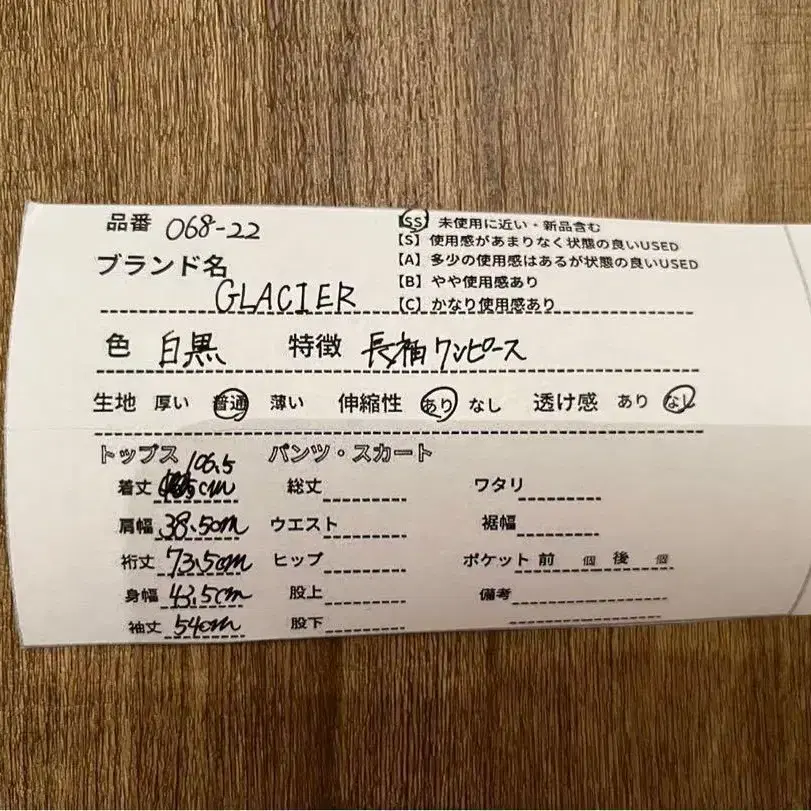 品番 068-22
[SS] 未使用に近い・新品含む
【S】使用感があまりなく状態の良いUSED
【A】多少の使用感はあるが状態の良いUSED
【B】やや使用感あり
【C】かなり使用感あり
ブランド名 GLACIER
色 白黒 特徴 長袖ワンピース
生地 厚い 普通 薄い 伸縮性 あり なし 透け感 あり なし
トップス パンツ・スカート
着丈 106.5 cm 総丈 ワタリ
肩幅 38.5cm ウエスト 裾幅
裄丈 73.5cm ヒップ ポケット 前 個 後 個
身幅 43.5cm 股上 備考
袖丈 54cm 股下